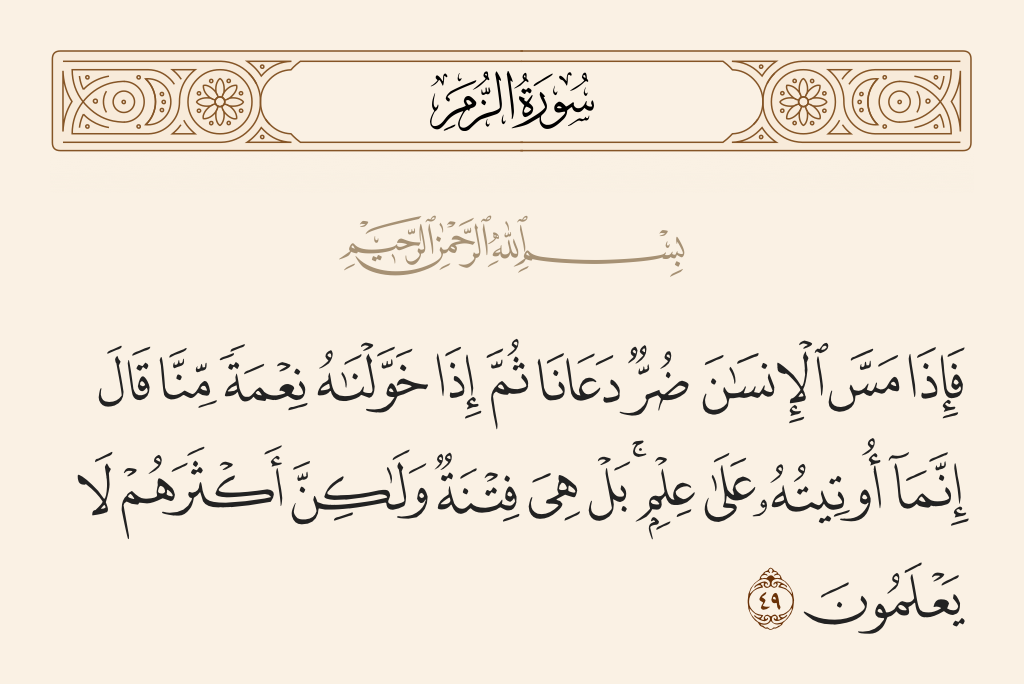 سُورَةُ الزُّمَرِ
بِسْمِ ٱللَّهِ ٱلرَّحْمَٰنِ ٱلرَّحِيمِ
فَإِذَا مَسَّ ٱلْإِنسَٰنَ ضُرٌّ دَعَانَا ثُمَّ إِذَا خَوَّلْنَٰهُ نِعْمَةً مِّنَّا قَالَ
إِنَّمَآ أُوتِيتُهُۥ عَلَىٰ عِلْمٍۭ ۚ بَلْ هِىَ فِتْنَةٌ وَلَٰكِنَّ أَكْثَرَهُمْ لَا
يَعْلَمُونَ ٤٩